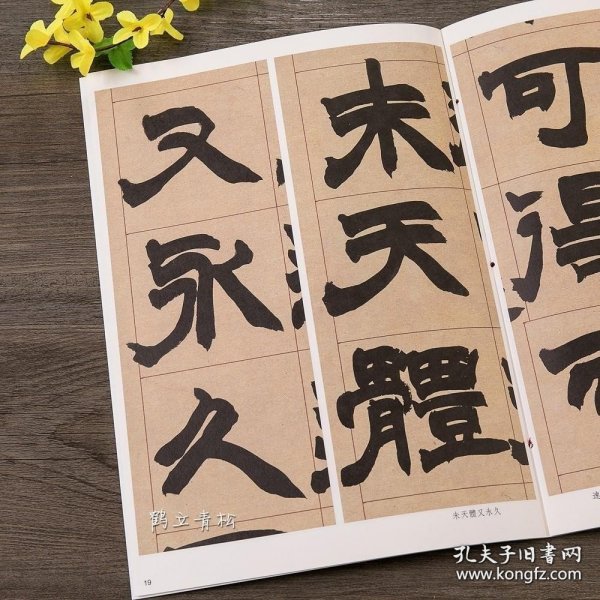 可
得
未
天
體
又
永
久
未天體又永久
19
鹤立青松
孔夫子旧书网
www.kongfz.com